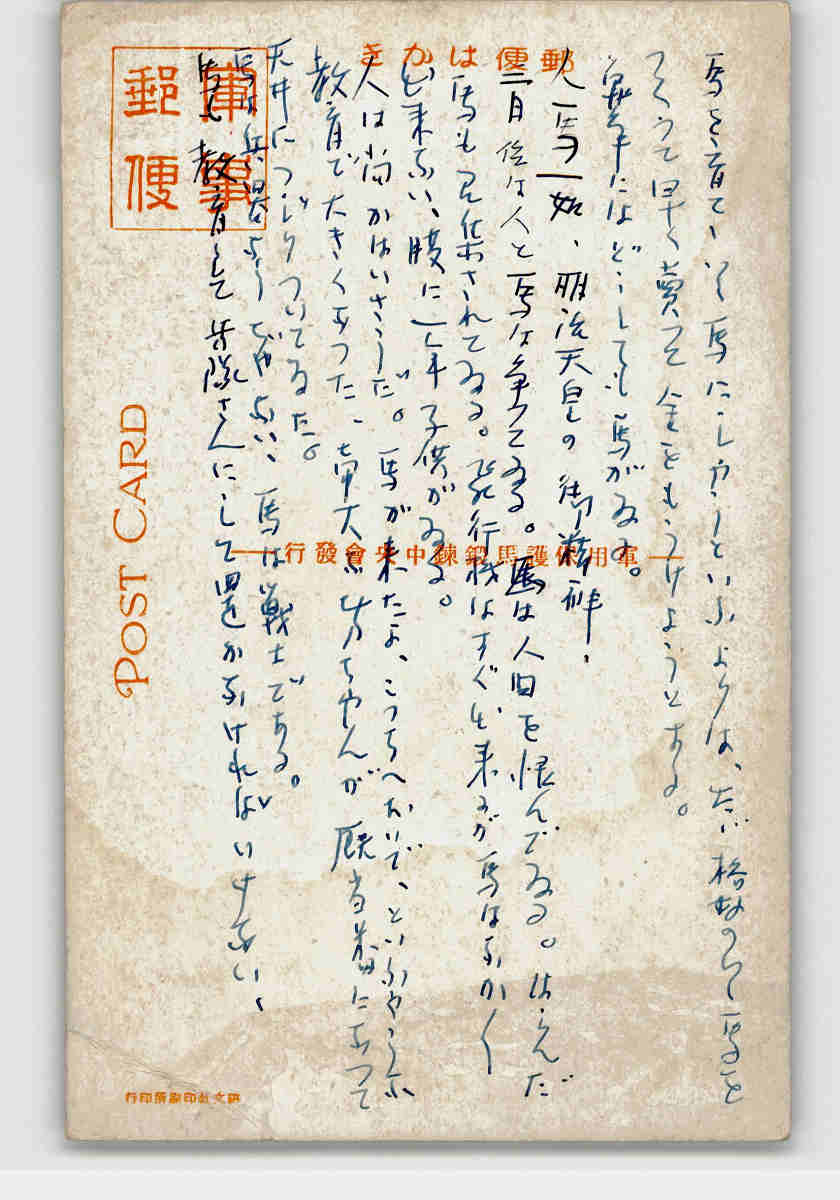 郵便はかき
軍事
郵便
馬を育てゝいく馬にしやうといふよりは、たゞ格好のいゝ馬を
つくつて早く賣つて金をもうけようとする。
にはどうしても馬がゐる。
人馬一如、明治天皇の御
二日位は人と馬は争つてゐる。馬は人間を恨んでゐる。はらんだ
馬も でされてゐる。飛行機はすぐ出来るが馬はなかく
出来ない、腹に一年子供がゐる。
人は尚かはいさうだ。馬が来たよ、こつちへおいで、といふやうな
教育で大きくなつた、 大な坊ちやんが厩当番にあつて
天井につゞりついてゐた。
馬は兵器 ぢやない、馬は戦士である。
馬も教育して兵隊さんにして置かなければいけない、
軍用保護馬鍛錬中央會發行
POST CARD
印刷所印行